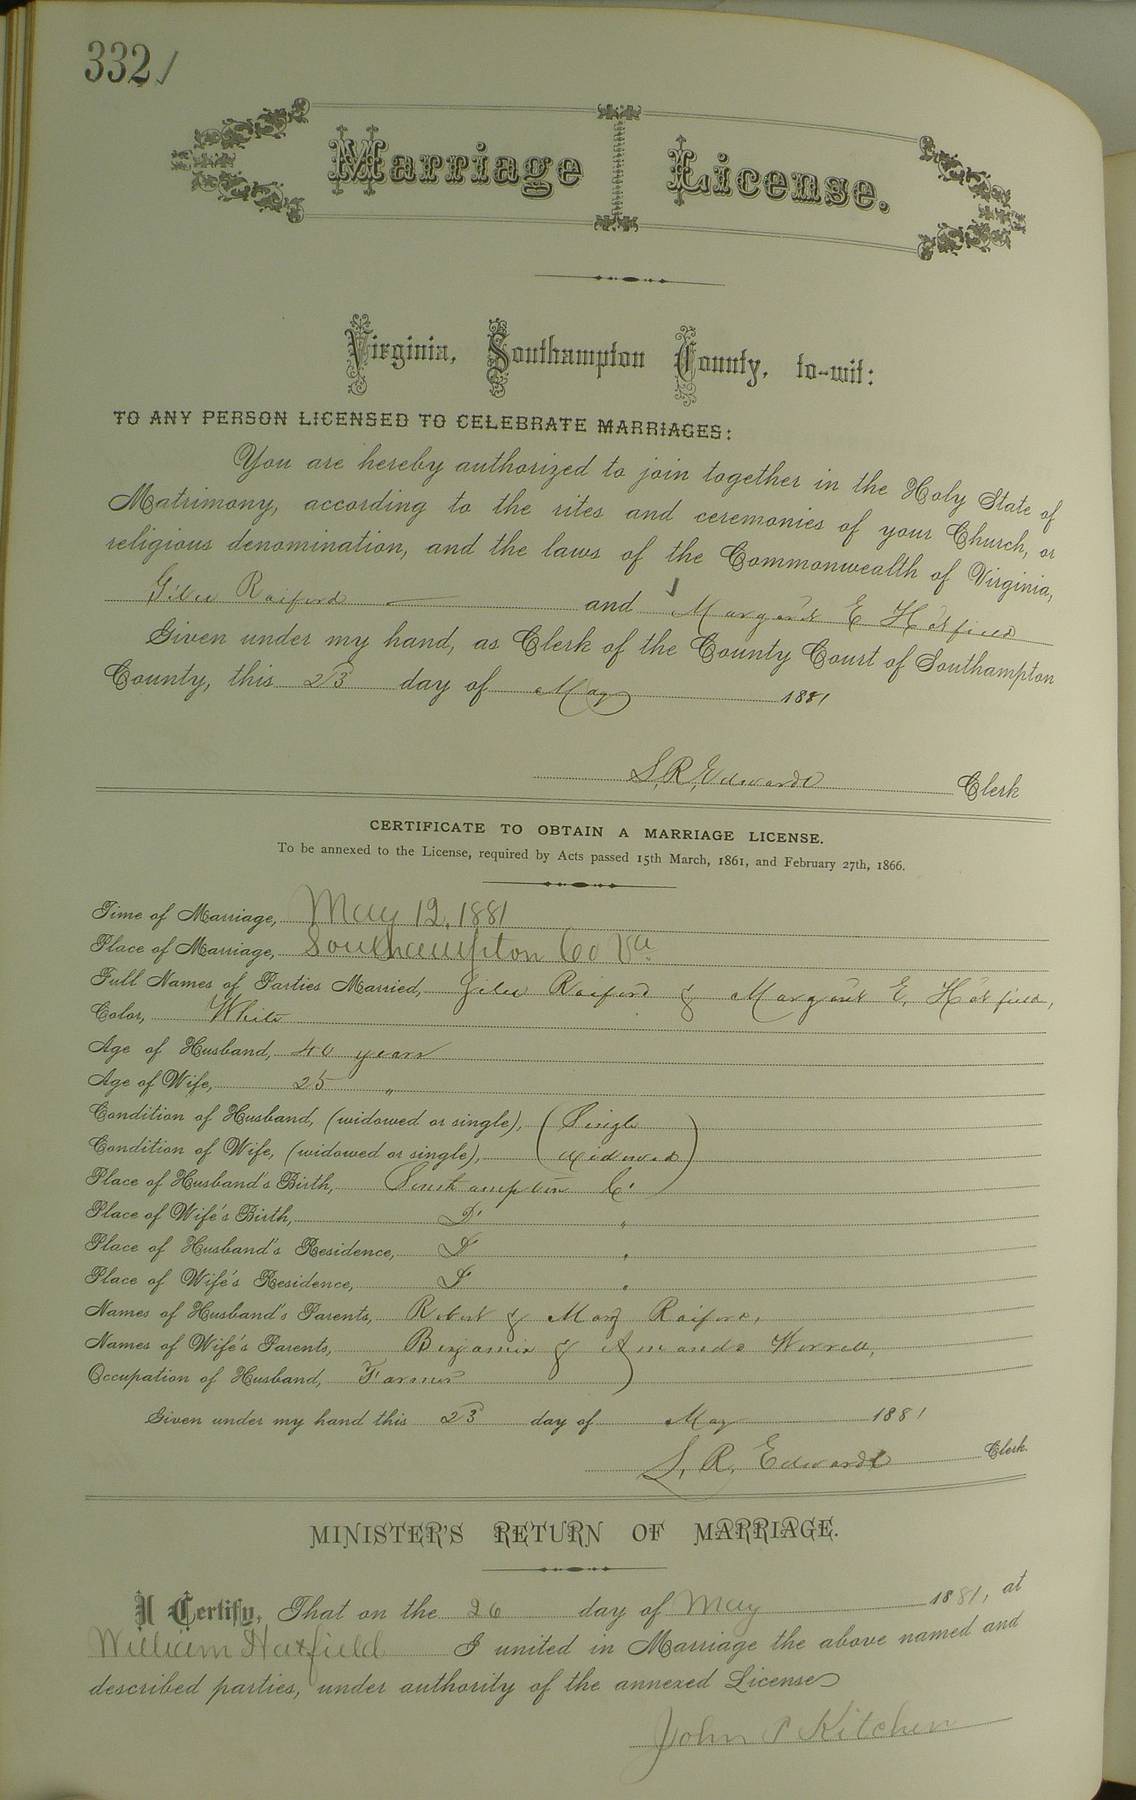 332
Marriage License.
Virginia, Southampton County, to-wit:
TO ANY PERSON LICENSED TO CELEBRATE MARRIAGES:
You are hereby authorized to join together in the Holy State of
Matrimony, according to the rites and ceremonies of your Church, or
religious denomination, and the laws of the Commonwealth of Virginia,
Giles Raiford and Margaret E Hatfield
Given under my hand, as Clerk of the County Court of Southampton
County, this 23 day of May 1881
S, R, Edwards Clerk
CERTIFICATE TO OBTAIN A MARRIAGE LICENSE.
To be annexed to the License, required by Acts passed 15th March, 1861, and February 27th, 1866.
Time of Marriage, May 12, 1881
Place of Marriage, Southampton Co Va.
Full Names of Parties Married, Giles Raiford & Margaret E. Hatfield,
Color, White
Age of Husband, 40 years
Age of Wife, 25 "
Condition of Husband, (widowed or single), Single
Condition of Wife, (widowed or single), widowed
Place of Husband's Birth, Southampton Co
Place of Wife's Birth, Do "
Place of Husband's Residence, Do "
Place of Wife's Residence, Do "
Names of Husband's Parents, Robert & Mary Raiford,
Names of Wife's Parents, Benjamin & Amanda Worrell,
Occupation of Husband, Farmer
Given under my hand this 23 day of May 1881
S, R, Edwards Clerk.
MINISTER'S RETURN OF MARRIAGE.
I Certify, That on the 26 day of May 1881, at
William Hatfield I united in Marriage the above named and
described parties, under authority of the annexed License
John P Kitchen